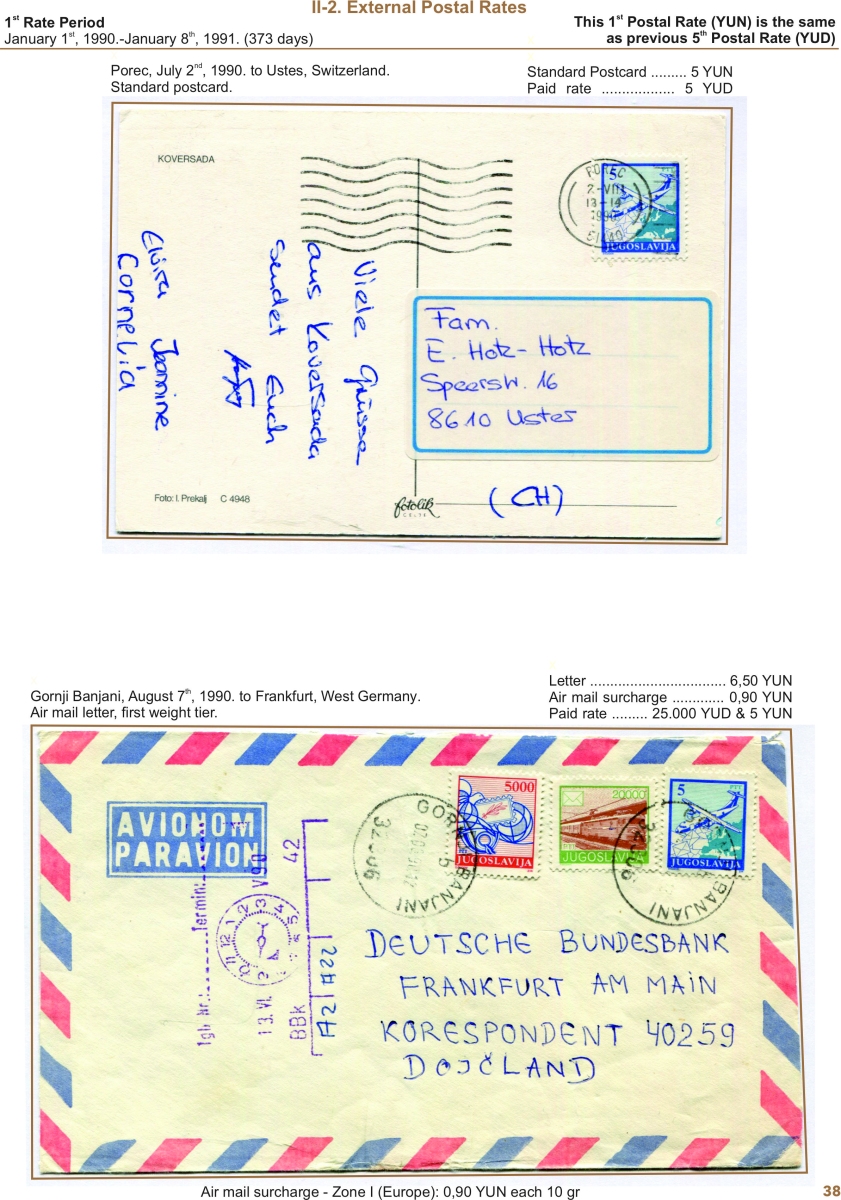 II-2. External Postal Rates
1st Rate Period
January 1st, 1990.-January 8th, 1991. (373 days)
This 1st Postal Rate (YUN) is the same
as previous 5th Postal Rate (YUD)
Porec, July 2nd, 1990. to Ustes, Switzerland.
Standard postcard.
Standard Postcard ......... 5 YUN
Paid rate .................. 5 YUD
KOVERSADA
POREC
5
2.-VII
13-14
1990
51440
JUGOSLAVIJA
Viele Grüsse
aus Koversada
sendet Euch
Elvira Jeannine
Cornelia
Fam.
E. Hotz-Hotz
Speerstr. 16
8610 Uster
(CH)
Foto: I. Prekalj C 4948
fotolik
CELJE
Letter ................................. 6,50 YUN
Air mail surcharge ............. 0,90 YUN
Paid rate ......... 25.000 YUD & 5 YUN
Gornji Banjani, August 7th, 1990. to Frankfurt, West Germany.
Air mail letter, first weight tier.
AVIONOM
PARAVION
5000
JUGOSLAVIJA
20000
JUGOSLAVIJA
5
JUGOSLAVIJA
BANJANI
32306
BANJANI
Tgb Nr.: Termin:
13.VI. V90
BBk 42
A2 A22
DEUTSCHE BUNDESBANK
FRANKFURT AM MAIN
KORESPONDENT 40259
DOJČLAND
Air mail surcharge - Zone I (Europe): 0,90 YUN each 10 gr
38